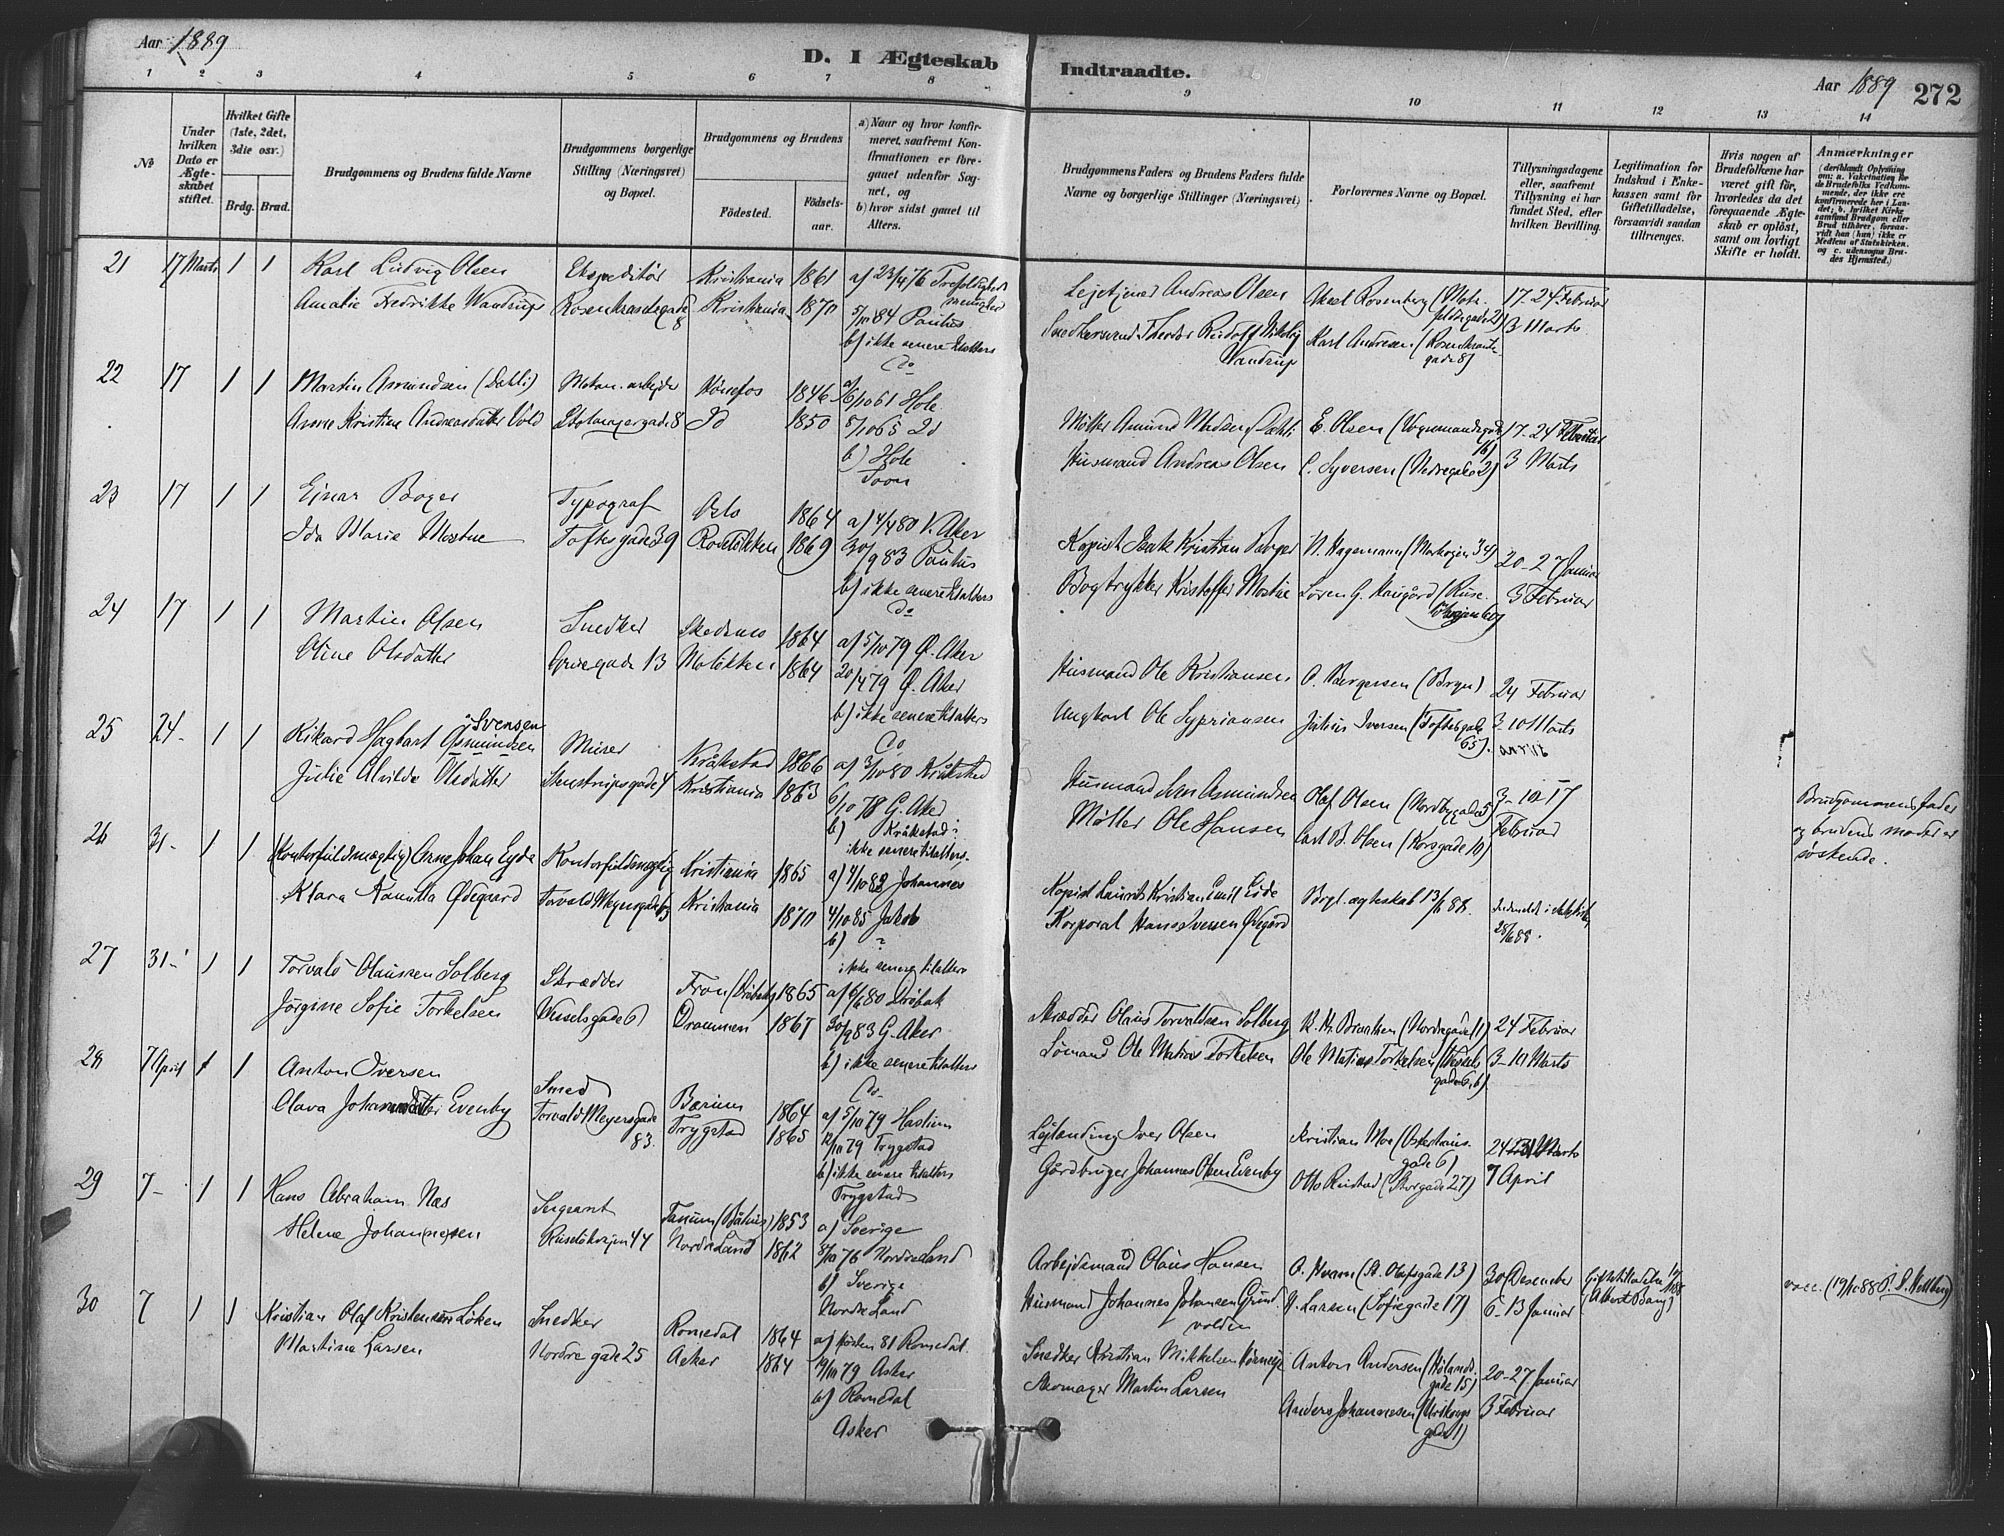 Aar 1889
D. I Ægteskab Indtraadte.
Aar 1889 272
1 2 3 4 5 6 7 8 9 10 11 12 13 14
No
Under hvilken Dato er Ægteskabet stiftet.
Hvilket Gifte (1ste, 2det, 3die osv.)
Brdg. Brud.
Brudgommens og Brudens fulde Navne
Brudgommens borgerlige Stilling (Næringsvei) og Bopæl.
Brudgommens og Brudens
Fødested.
Fødselsaar.
a) Naar og hvor konfirmeret, saafremt Konfirmationen er foregaaet udenfor Sognet, og
b) hvor sidst gaaet til Alters.
Brudgommens Faders og Brudens Faders fulde Navne og borgerlige Stillinger (Næringsvei)
Forlovernes Navne og Bopæl.
Tillysningsdagene eller, saafremt Tillysning ei har fundet Sted, efter hvilken Bevilling.
Legitimation for Indskud i Enkekassen samt for Giftetilladelse, forsaavidt saadan tiltrænges.
Hvis nogen af Brudefolkene har været gift før, hvorledes da det foregaaende Ægteskab er opløst, samt om lovligt Skifte er holdt.
Anmærkninger
21 17 Marts 1 1
Karl Ludvig Olsen
Amalie Fredrikke Wandrup
Ekspeditør
Rosenkrandsgade 8
Kristiania 1861
Kristiania 1870
a) 23/4 76 Trefoldigheds menighed
5/10 84 Paulus
b) ikke senere tilalters
Do
Lejetjener Andreas Olsen
Snedkersvend Theodor Rudolf Nikolaj Wandrup
Aksel Rosenberg (Motzfeldtsgade 21)
Karl Andresen (Rosenkrantzgade 8)
17-24 Februar
3 Marts
22 17 1 1
Martin Asmundsen (Dæhli)
Anne Kristine Andreasdatter Vold
Stolmagergade 8
Hønefos 1846
Do 1850
a) 6/10 61 Hole
8/10 65 Do
b) Hole
Møller Amund Madsen Dæhli
Husmand Andreas Olsen
E. Olsen (Vognmandsgade 16)
C. Syversen (Nedregade 2)
17-24 Februar
3 Marts
23 17 1 1
Ejnar Borger
Ida Marie Mostue
Typograf
Toftesgade 39
Oslo 1864
Rodeløkken 1869
a) 4/4 80 V. Aker
30/9 83 Paulus
b) ikke senere tilalters
Do
Kopist Isak Kristian Borger
Bogtrykker Kristoffer Mostue
N. Hagemann (Markvejen 34)
Søren G. Haugård
20-27 Januar
3 Februar
24 17 1 1
Martin Olsen
Oline Olsdatter
Snedker
Gruegade 13
Skedsmo 1864
1864
a) 5/10 79 Ø. Aker
20/4 79 Ø. Aker
b) ikke senere tilalters
Do
Husmand Ole Kristiansen
Ungkarl Ole Sypriansen
O. Børgersen (Bryn)
Julius Iversen (Toftesgade 65)
24 Februar
3-10 Marts
25 24- 1 1
Rikard Hagbart Asmundsen
Svensen
Julie Alvilde Olsdatter
Murer
Stenstrupsgade 4
Kråkstad 1866
Kristiania 1863
a) 3/10 80 Kråkstad
6/10 78 G. Aker
b) Kråkstad
ikke senere tilalters
Husmand Sven Asmundsen
Møller Ole Hansen
Olaf Olsen (Nordbygade 5)
Carl B. Olsen (Korsgade 10)
3-10-17
Februar
Brudgommens fader
og brudens moder er
søskende.
26 31- 1 1
(Kontorfuldmægtig) Arne Johan Eyde
Klara Kamilla Ødegaard
Kontorfuldmægtig
Torvald Meyersgade
Kristiania 1865
Kristiania 1870
a) 4/10 83 Johannes
4/10 85 Jakob
b) ?
ikke senere tilalters
Kopist Laurits Kristian Emil Eide
Korporal Hans Svensen Ødegård
Borgl. ægteskab 13/6 88.
28/6 88.
27 31- 1 1
Torvald Olaussen Solberg
Jørgine Sofie Torkelsen
Skrædder
Vesselsgade 6
Fron (Drøbak) 1865
Drammen 1867
a) 6/6 80 Drøbak
30/9 83 G. Aker
b) ikke senere tilalters
Do
Skrædder Olaus Torvaldsen Solberg
Sømand Ole Matias Torkelsen
K. Hr. Braathen (Nordregade 11)
Ole Matias Torkelsen (Vesselsgade 6, b)
24 Februar
3-10 Marts
28 7 April 1 1
Anton Iversen
Olava Johannesdatter Evenby
Smed
Torvald Meyersgade 83.
Bærum 1864
Trygstad 1865
a) 5/10 79 Haslum
12/10 79 Trygstad
b) ikke senere tilalters
Trygstad
Lejlænding Iver Olsen
Gårdbruger Johannes Olsen Evenby
Kristian Moe (Osterhausgade 6)
Otto Rustad (Storgade 27)
24 31 Marts
7 April
29 7- 1 1
Hans Abraham Næs
Helene Johannesen
Sergeant
Ruseløkvejen 44
Tanum (Båhus) 1853
Nordre Land 1862
a) Sverige
8/10 76 Nordre Land
b) Sverige
Nordre Land
Arbejdsmand Olaus Hansen
Husmand Johannes Johansen Grindvolden
O. Hvam (St. Olafsgade 13)
H. Larsen (Sofiegade 17)
30 Desember
6-13 Januar
Giftetilladelse
(Albert Bang)
vacc. (19/10 88 P. S. Hellberg)
30 7 1 1
Kristian Olaf Kristensen Løken
Martine Larsen
Snedker
Nordre gade 25
Romedal 1864
Asker 1864
a) Høsten 81 Romedal
19/10 79 Asker
b) Romedal
Asker
Snedker Kristian Mikkelsen
Skomager Martin Larsen
Anton Andersen (Hølandsgade 15)
Anders Johannesen
20-27 Januar
3 Februar